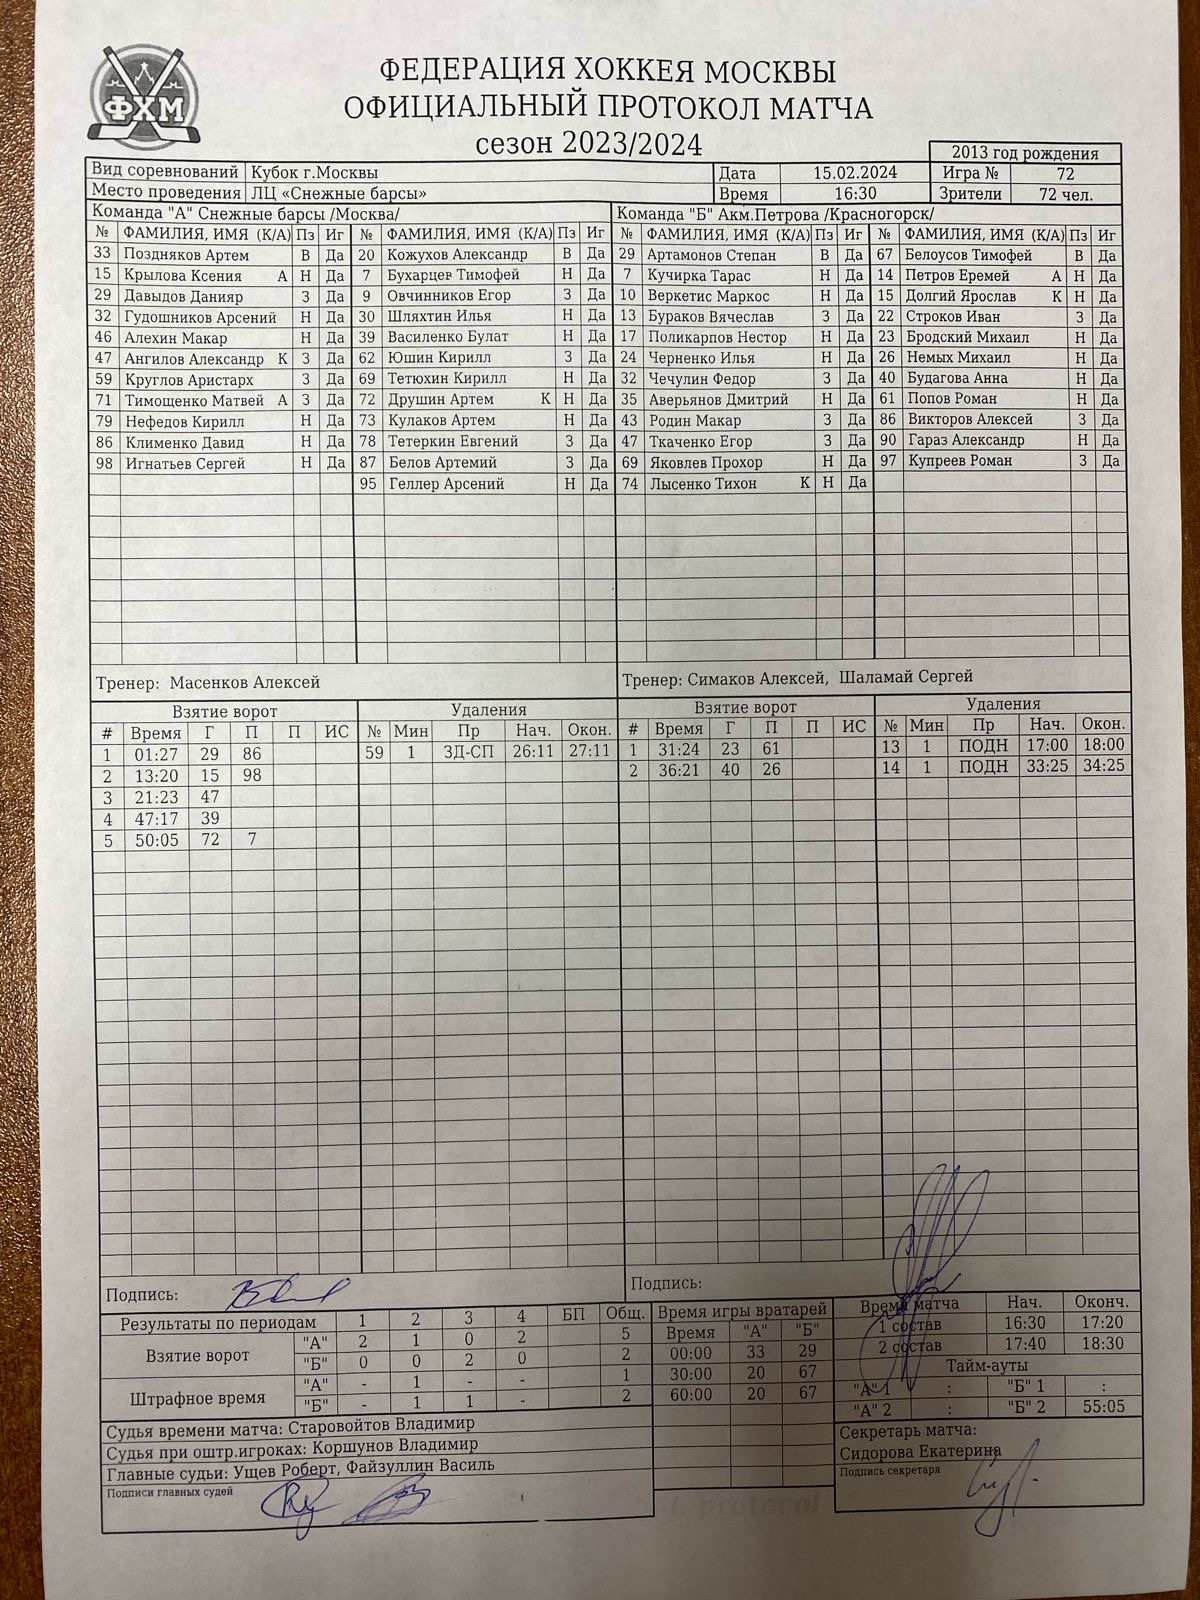 ФХМ
ФЕДЕРАЦИЯ ХОККЕЯ МОСКВЫ
ОФИЦИАЛЬНЫЙ ПРОТОКОЛ МАТЧА
сезон 2023/2024
2013 год рождения
Вид соревнований Кубок г.Москвы Дата 15.02.2024 Игра № 72
Место проведения ЛЦ «Снежные барсы» Время 16:30 Зрители 72 чел.
Команда "А" Снежные барсы /Москва/ Команда "Б" Акм.Петрова /Красногорск/
№ ФАМИЛИЯ, ИМЯ (К/А) Пз Иг № ФАМИЛИЯ, ИМЯ (К/А) Пз Иг № ФАМИЛИЯ, ИМЯ (К/А) Пз Иг № ФАМИЛИЯ, ИМЯ (К/А) Пз Иг
33 Поздняков Артем В Да 20 Кожухов Александр В Да 29 Артамонов Степан В Да 67 Белоусов Тимофей В Да
15 Крылова Ксения А Н Да 7 Бухарцев Тимофей Н Да 7 Кучирка Тарас Н Да 14 Петров Еремей А Н Да
29 Давыдов Данияр З Да 9 Овчинников Егор З Да 10 Веркетис Маркос Н Да 15 Долгий Ярослав К Н Да
32 Гудошников Арсений Н Да 30 Шляхтин Илья Н Да 13 Бураков Вячеслав З Да 22 Строков Иван З Да
46 Алехин Макар Н Да 39 Василенко Булат Н Да 17 Поликарпов Нестор Н Да 23 Бродский Михаил Н Да
47 Ангилов Александр К З Да 62 Юшин Кирилл З Да 24 Черненко Илья Н Да 26 Немых Михаил Н Да
59 Круглов Аристарх З Да 69 Тетюхин Кирилл Н Да 32 Чечулин Федор З Да 40 Будагова Анна Н Да
71 Тимощенко Матвей А З Да 72 Друшин Артем К Н Да 35 Аверьянов Дмитрий Н Да 61 Попов Роман Н Да
79 Нефедов Кирилл Н Да 73 Кулаков Артем Н Да 43 Родин Макар З Да 86 Викторов Алексей З Да
86 Клименко Давид Н Да 78 Тетеркин Евгений З Да 47 Ткаченко Егор З Да 90 Гараз Александр Н Да
98 Игнатьев Сергей Н Да 87 Белов Артемий З Да 69 Яковлев Прохор Н Да 97 Купреев Роман З Да
95 Геллер Арсений Н Да 74 Лысенко Тихон К Н Да
Тренер: Масенков Алексей Тренер: Симаков Алексей, Шаламай Сергей
Взятие ворот Удаления Взятие ворот Удаления
# Время Г П П ИС № Мин Пр Нач. Окон. # Время Г П П ИС № Мин Пр Нач. Окон.
1 01:27 29 86 59 1 ЗД-СП 26:11 27:11 1 31:24 23 61 13 1 ПОДН 17:00 18:00
2 13:20 15 98 2 36:21 40 26 14 1 ПОДН 33:25 34:25
3 21:23 47
4 47:17 39
5 50:05 72 7
Подпись: Подпись:
Результаты по периодам 1 2 3 4 БП Общ. Время игры вратарей Время матча Нач. Оконч.
Взятие ворот "А" 2 1 0 2 5 Время "А" "Б" 1 состав 16:30 17:20
"Б" 0 0 2 0 2 00:00 33 29 2 состав 17:40 18:30
Штрафное время "А" - 1 - - 1 30:00 20 67 Тайм-ауты
"Б" - 1 1 - 2 60:00 20 67 "А" 1 : "Б" 1 :
"А" 2 : "Б" 2 55:05
Судья времени матча: Старовойтов Владимир
Судья при оштр.игроках: Коршунов Владимир
Главные судьи: Ущев Роберт, Файзуллин Василь
Подписи главных судей
Секретарь матча:
Сидорова Екатерина
Подпись секретаря